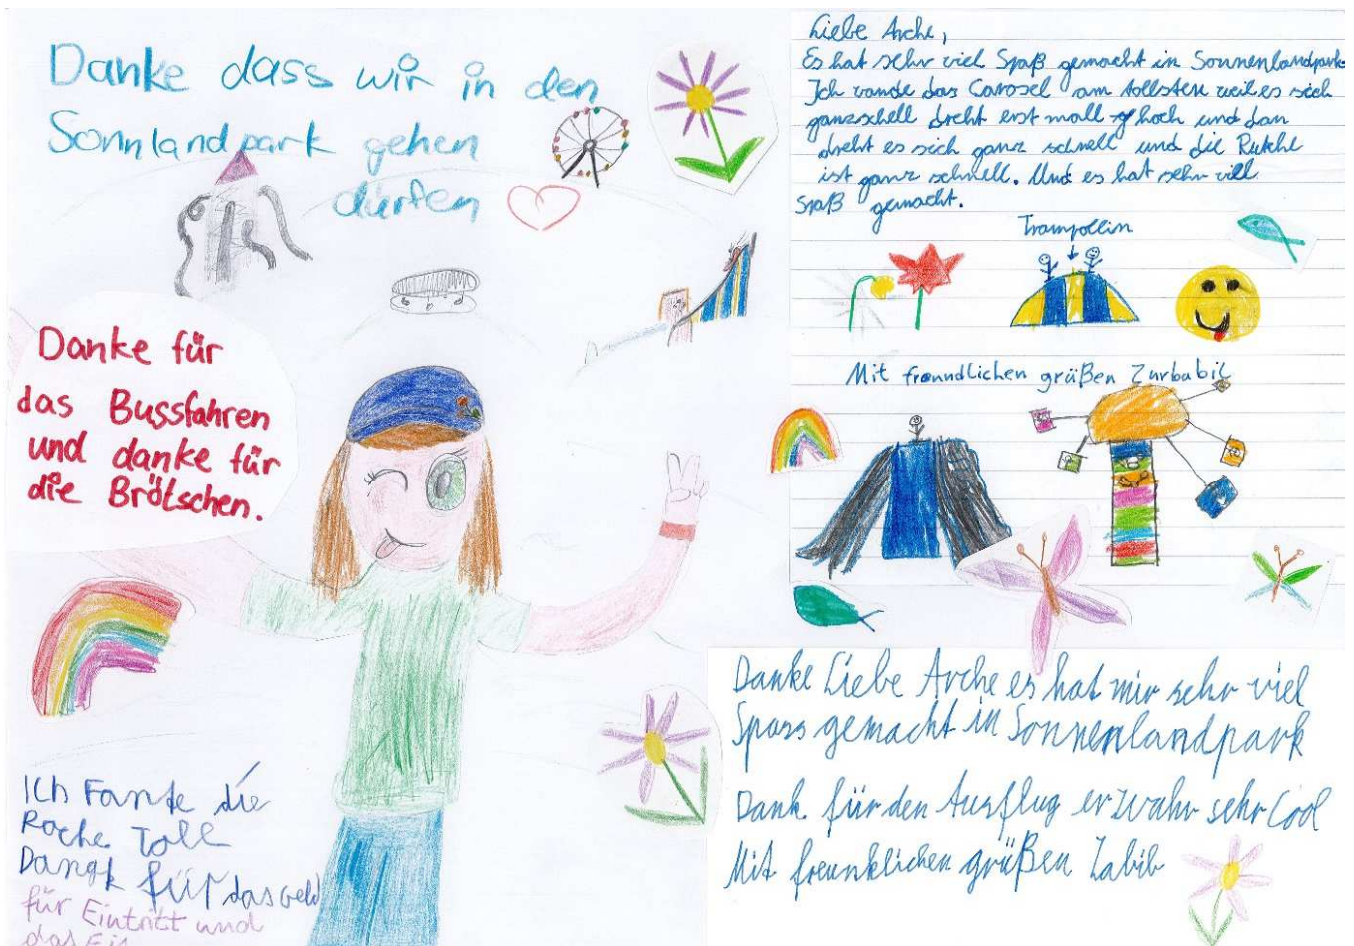 Danke dass wir in den
Sonnlandpark gehen
dürfen
Danke für
das Bussfahren
und danke für
die Brötschen.
Ich Fante die
Roche Toll
Dangk für das Geld
für Eintritt und
das Eis
Liebe Arche,
Es hat sehr viel Spaß gemacht in Sonnenlandpark
Ich vande das Carosel am tollsten weil es sich
ganzschell dreht erst mall hoch und dan
dreht es sich ganz schnell und die Rutche
ist ganz schnell. Und es hat sehr viell
Spaß gemacht.
Trampollin
Mit freundlichen grüßen Zurbabil
Danke Liebe Arche es hat mir sehr viel
Spass gemacht in Sonnenlandpark
Dank für den Ausflug er wahr sehr Cool
Mit freunklichen grüßen Labib